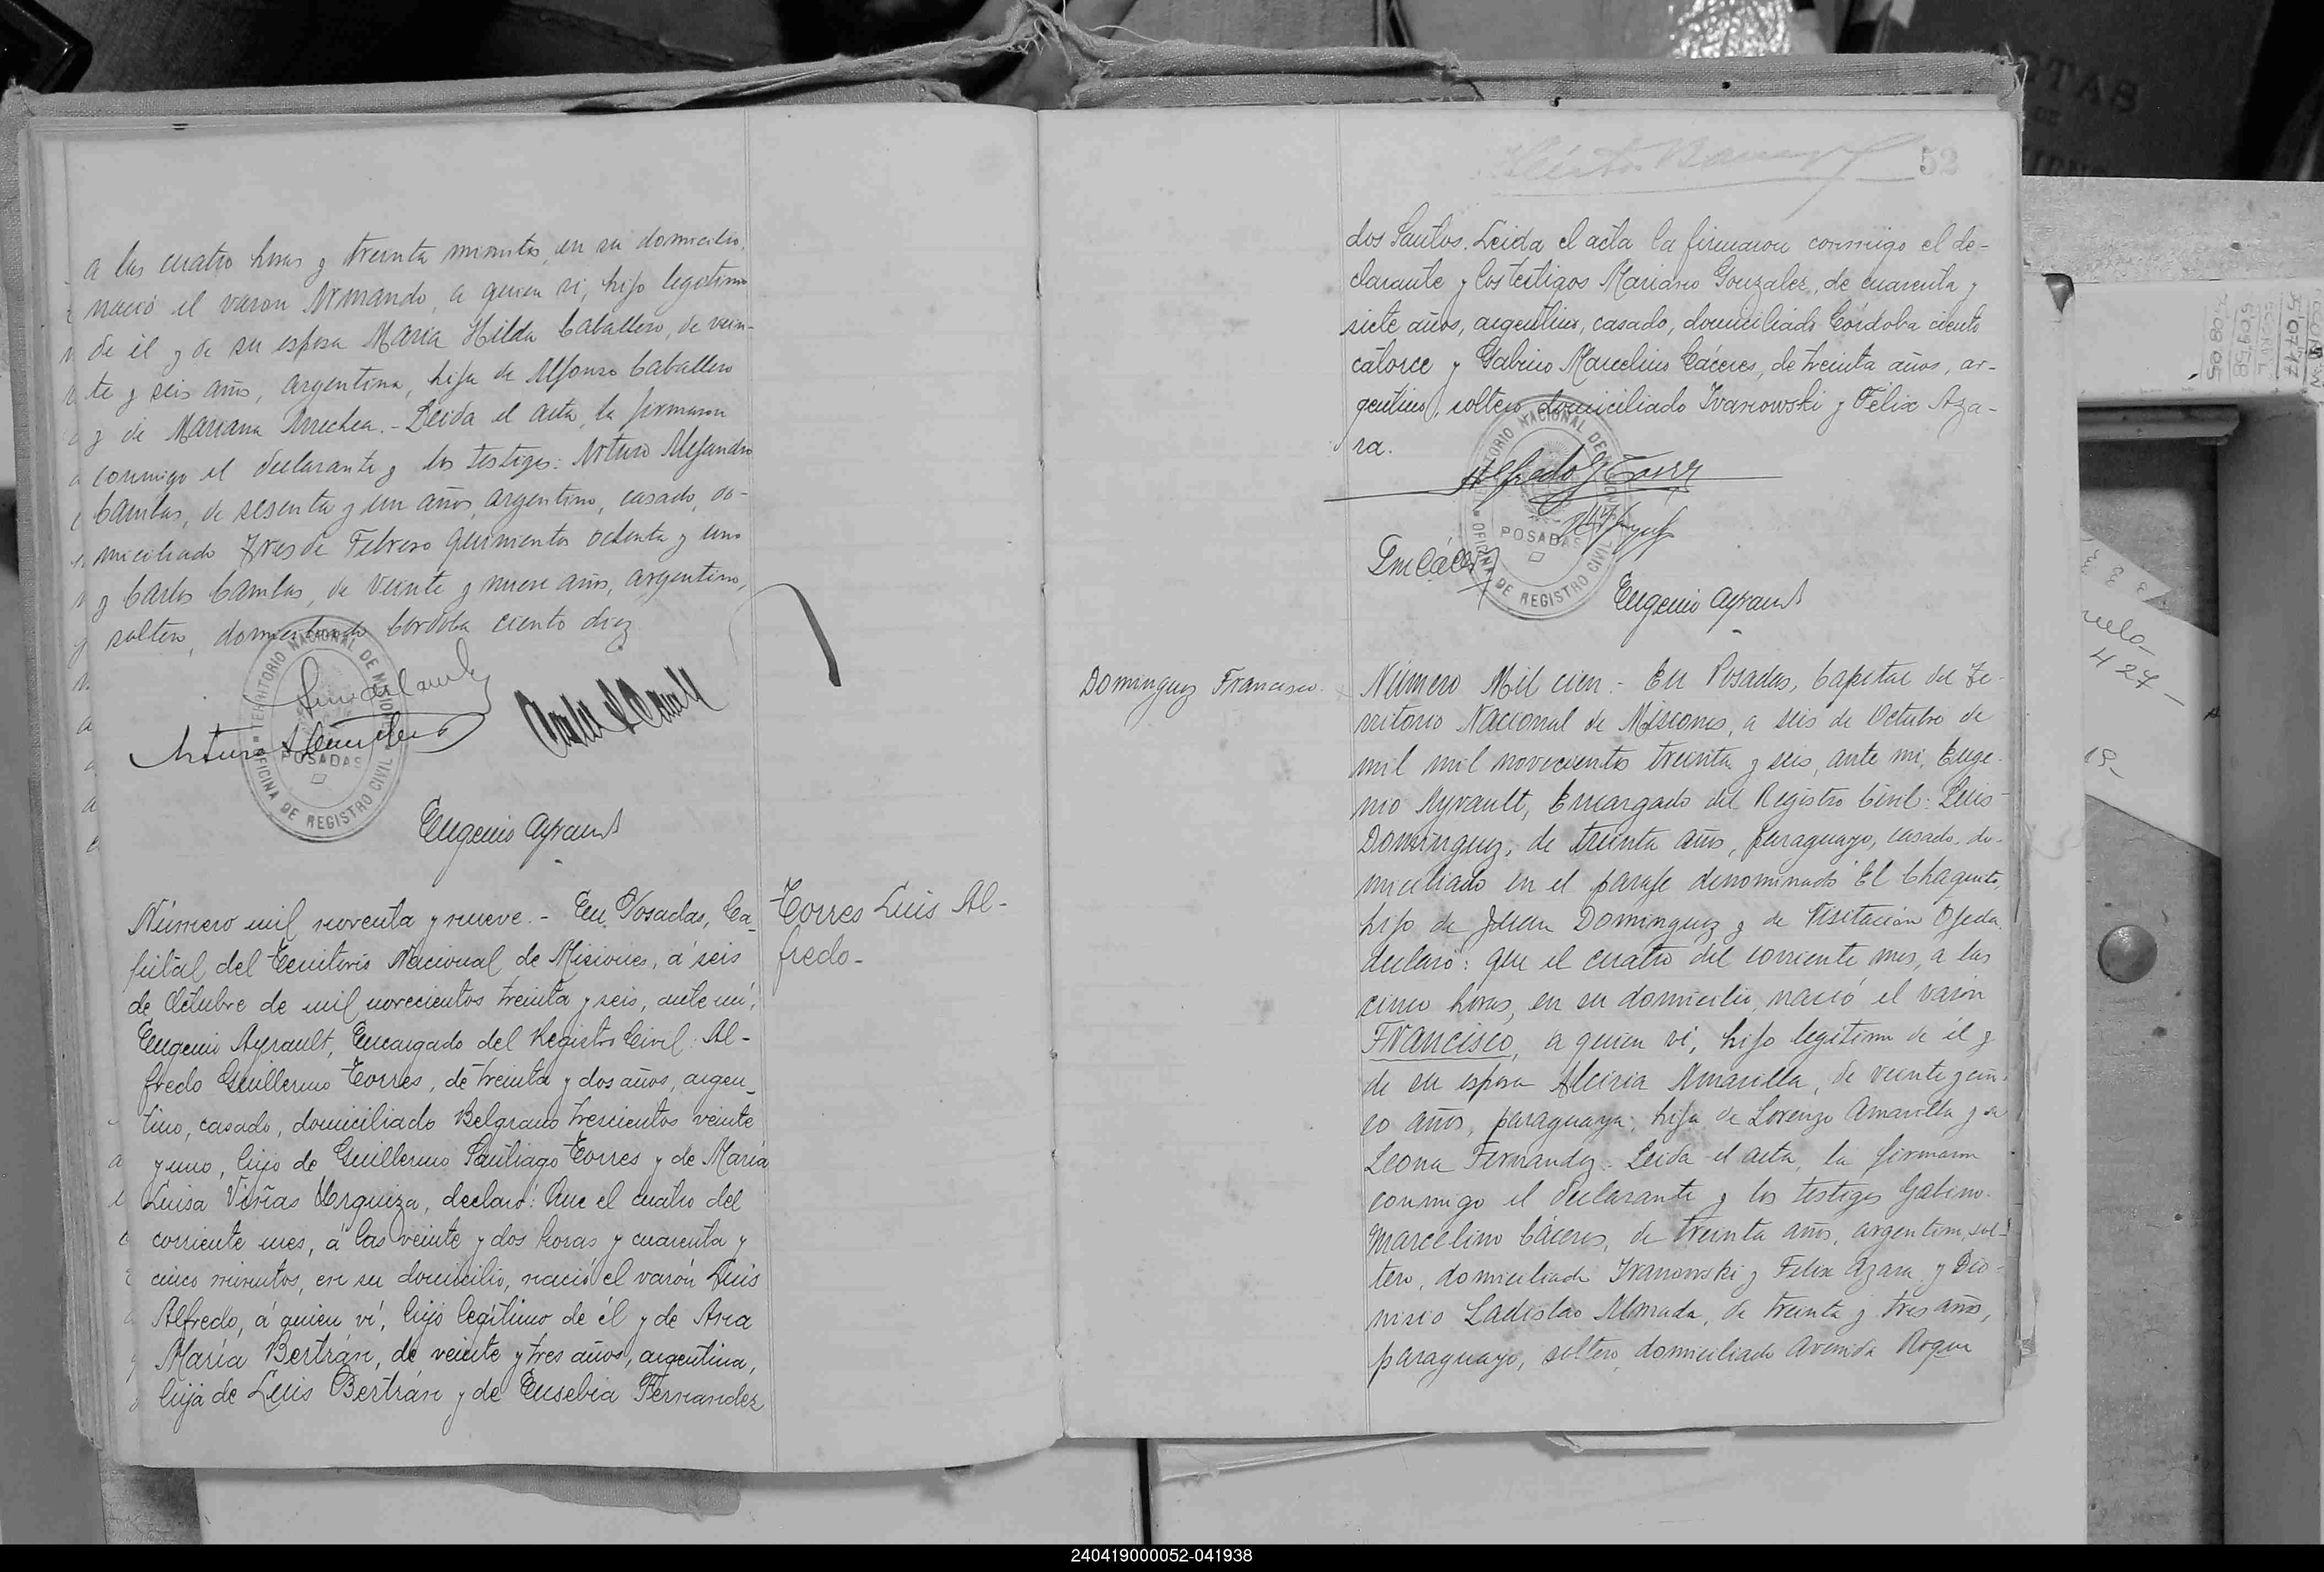 a las cuatro horas y treinta minutos, en su domicilio,
nació el varon Armando, a quien vi, hijo legitimo
de él y de su esposa Maria Hilda Caballero, de vein-
te y seis años, argentina, hija de Alfonso Caballero
y de Mariana Arrechea. - Leida el acta, la firmaron
conmigo el declarante y los testigos: Arturo Alejandro
Cambas, de sesenta y un años, argentino, casado, do-
miciliado Tres de Febrero quinientos ochenta y uno
y Carlos Cambas, de veinte y nueve años, argentino,
soltero, domiciliado Cordoba ciento diez
TERRITORIO NACIONAL DE MISIONES
POSADAS
OFICINA DE REGISTRO CIVIL
Eugenio Ayrault
Número mil noventa y nueve. - En Posadas, Ca-
pital del Territorio Nacional de Misiones, á seis
de Octubre de mil novecientos treinta y seis, ante mí,
Eugenio Ayrault, Encargado del Registro Civil: Al-
fredo Guillermo Torres, de treinta y dos años, argen-
tino, casado, domiciliado Belgrano trescientos veinte
y uno, hijo de Guillermo Santiago Torres y de María
Luisa Viñas Urquiza, declaró: Que el cuatro del
corriente mes, á las veinte y dos horas y cuarenta y
cinco minutos, en su domicilio, nació el varón Luis
Alfredo, á quien ví, hijo legítimo de él y de Ana
María Bertrán, de veinte y tres años, argentina,
hija de Luis Bertrán y de Eusebia Fernandez
Torres Luis Al-
fredo-
52
dos Santos. Leida el acta la firmaron conmigo el de-
clarante y los testigos Mariano Gonzalez, de cuarenta y
siete años, argentino, casado, domiciliado Córdoba ciento
catorce y Gabino Marcelino Cáceres, de treinta años, ar-
gentino, soltero domiciliado Ivanowski y Félix Aza-
ra.
Alfredo G Torres
TERRITORIO NACIONAL DE MISIONES
POSADAS
OFICINA DE REGISTRO CIVIL
GmCáceres
Eugenio Ayrault
Dominguez Francisco.
Número Mil cien. - En Posadas, Capital del Te-
rritorio Nacional de Misiones, a seis de Octubre de
mil mil novecientos treinta y seis, ante mi, Euge-
nio Ayrault, Encargado del Registro Civil: Luis
Dominguez, de treinta años, paraguayo, casado, do-
miciliado en el paraje denominado El Chaquito,
hijo de Juan Dominguez y de Visitación Ojeda,
declaró: que el cuatro del corriente mes, a las
cinco horas, en su domicilio, nació el varón
Francisco, a quien vi, hijo legitimo de él y
de su esposa Alciria Amarilla, de veinte y cin-
co años, paraguaya, hija de Lorenzo Amarilla y de
Leona Fernandez. Leida el acta, la firmaron
conmigo el declarante y los testigos Gabino
Marcelino Cáceres, de treinta años, argentino, sol-
tero, domiciliado Ivanowski y Felix Azara y Dio-
nisio Ladislao Almada, de treinta y tres años,
paraguayo, soltero, domiciliado Avenida Roque
427
240419000052-041938